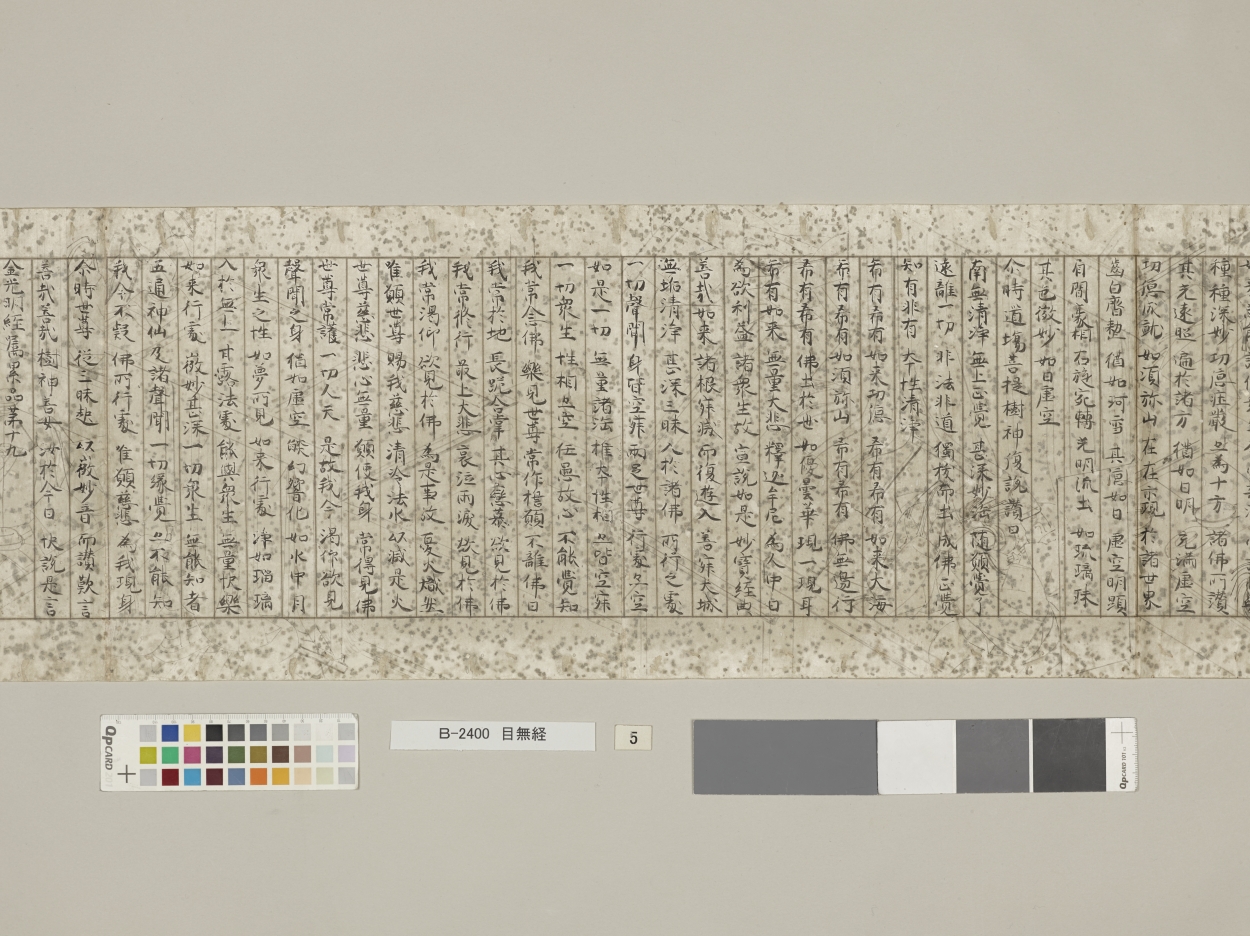 種種深妙 功徳荘嚴 亦為十方 諸佛所讃
其光遠照 遍於諸方 猶如日明 充滿虛空
功徳成就 如須弥山 在在示現 於諸世界
齒白齊密 猶如珂雪 其徳如日 虛空明顯
眉間豪相 右旋宛轉 光明流出 如琉璃珠
其色微妙 如日處空
尒時道場菩提樹神復說讃曰
南無清淨 無上正覺 甚深妙法 随順覺了
遠離一切 非法非道 獨拔而出 成佛正覺
知有非有 本性清淨
希有希有 如来功徳 希有希有 如来大海
希有希有 如須弥山 希有希有 佛無邊行
希有希有 佛出於世 如優曇華 現一現耳
希有如来 無量大悲 釋迦牟尼 為人中日
為欲利益 諸衆生故 宣説如是 妙寳経典
善哉如来 諸根寂滅 而復遊入 善寂大城
無垢清淨 甚深三昧 入於諸佛 所行之處
一切聲聞 身皆空寂 兩足世尊 行處亦空
如是一切 無量諸法 推本性相 亦皆空寂
一切衆生 性相亦空 狂愚故心 不能覺知
我常念佛 樂見世尊 常作擔願 不離佛日
我常於地 長跪合掌 其心戀慕 欲見於佛
我常修行 最上大悲 哀泣雨淚 欲見於佛
我常渴仰 欲見於佛 為是事故 憂火熾燃
唯願世尊 賜我慈悲 清冷法水 以滅是火
世尊慈悲 悲心無量 願使我身 常得見佛
世尊常護 一切人天 是故我今 渴仰欲見
聲聞之身 猶如虛空 𦦨幻響化 如水中月
衆生之性 如夢所見 如来行處 淨如瑠璃
入於無上 甘露法處 能與衆生 無量快樂
如来行處 微妙甚深 一切衆生 無能知者
五通神仙 及諸聲聞 一切縁覺 亦不能知
我今不疑 佛所行處 唯願慈悲 為我現身
尒時世尊 從三昧起 以微妙音 而讃歎言
善哉善哉 樹神善女 汝於今日 快說是言
金光明経囑累品第十九
B-2400 目無経
5
QPCARD
QPCARD 101